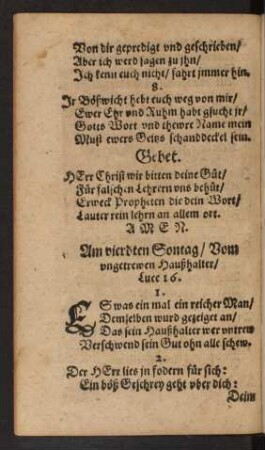 Von dir gepredigt vnd geschrieben/
Aber ich werd sagen zu jhn/
Ich kenn euch nicht/ fahrt jmmer hin.
8.
Ir Bößwicht hebt euch weg von mir/
Ewer Ehr vnd Ruhm habt gsucht jr/
Gotts Wort vnd thewre Name mein
Must ewers Gelds schanddeckel sein.
Gebet.
HErr Christ wir bitten deine Güt/
Für falschen Lehrern vns behüt/
Erweck Propheten die dein Wort/
Lauter rein lehrn an allem ort.
A M E N.
Am vierdten Sontag/ Vom
vngetrewen Haußhalter/
Luce 16.
1.
ES was ein mal ein reicher Man/
Demselben wurd gezeiget an/
Das sein Haußhalter wer vntrew
Verschwend sein Gut ohn alle schew.
2.
Der HErr lies jn fodern für sich:
Ein böß Geschrey geht vber dich:
Deim